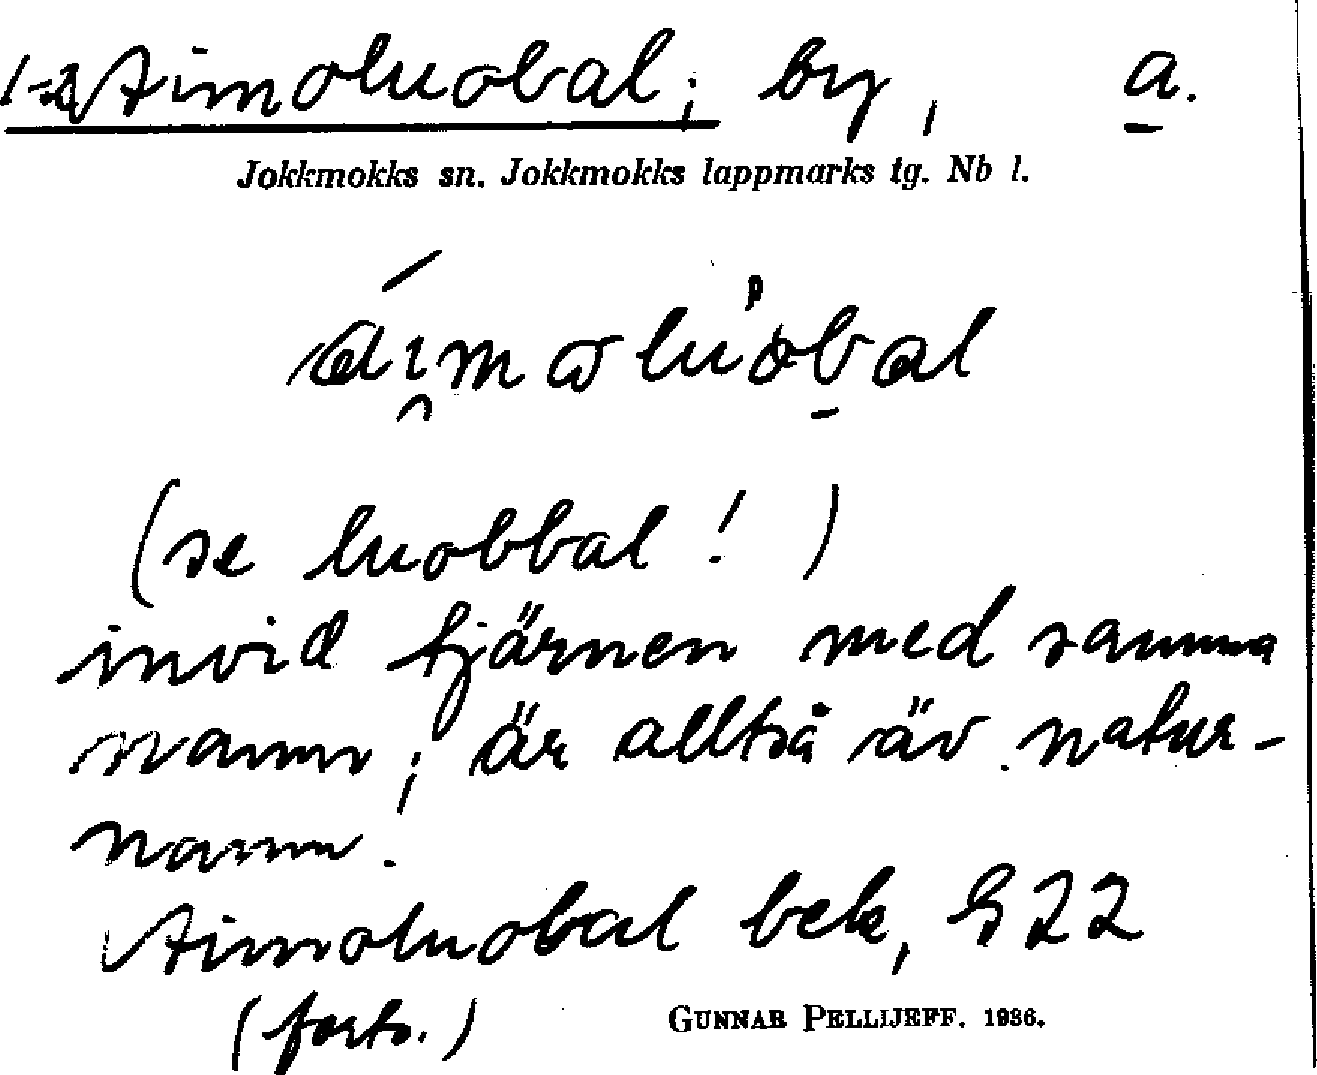 1-2 Aimoluobal; by, a.
Jokkmokks sn. Jokkmokks lappmarks tg. Nb l.
(se luobbal!)
invid tjärnen med samma
namn; är alltså äv. natur-
namn.
Aimoluobal bek, G22
(forts.)
GUNNAR PELLIJEFF. 1936.